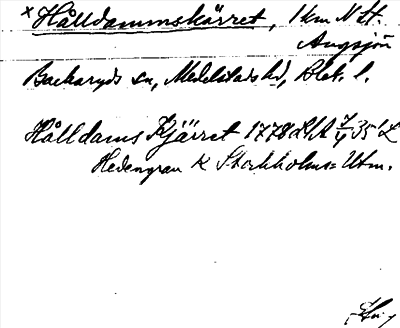 × Hålldammskärret, 1 km N st.
Angsjön
Backaryds sn, Medelstads hd, Blek. l.
Hålldams Kjärret 1778 LSA 7/4 35' L
Hedengran K Stockholms= Utm.